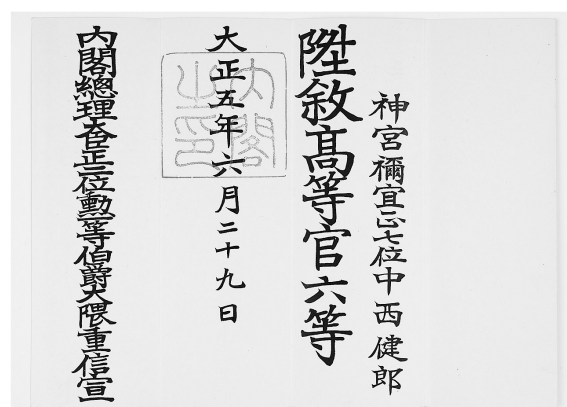 神宮禰宜正七位中西健郎
陞敘高等官六等
大正五年六月二十九日
内閣之印
内閣總理大臣正三位勳一等伯爵大隈重信宣